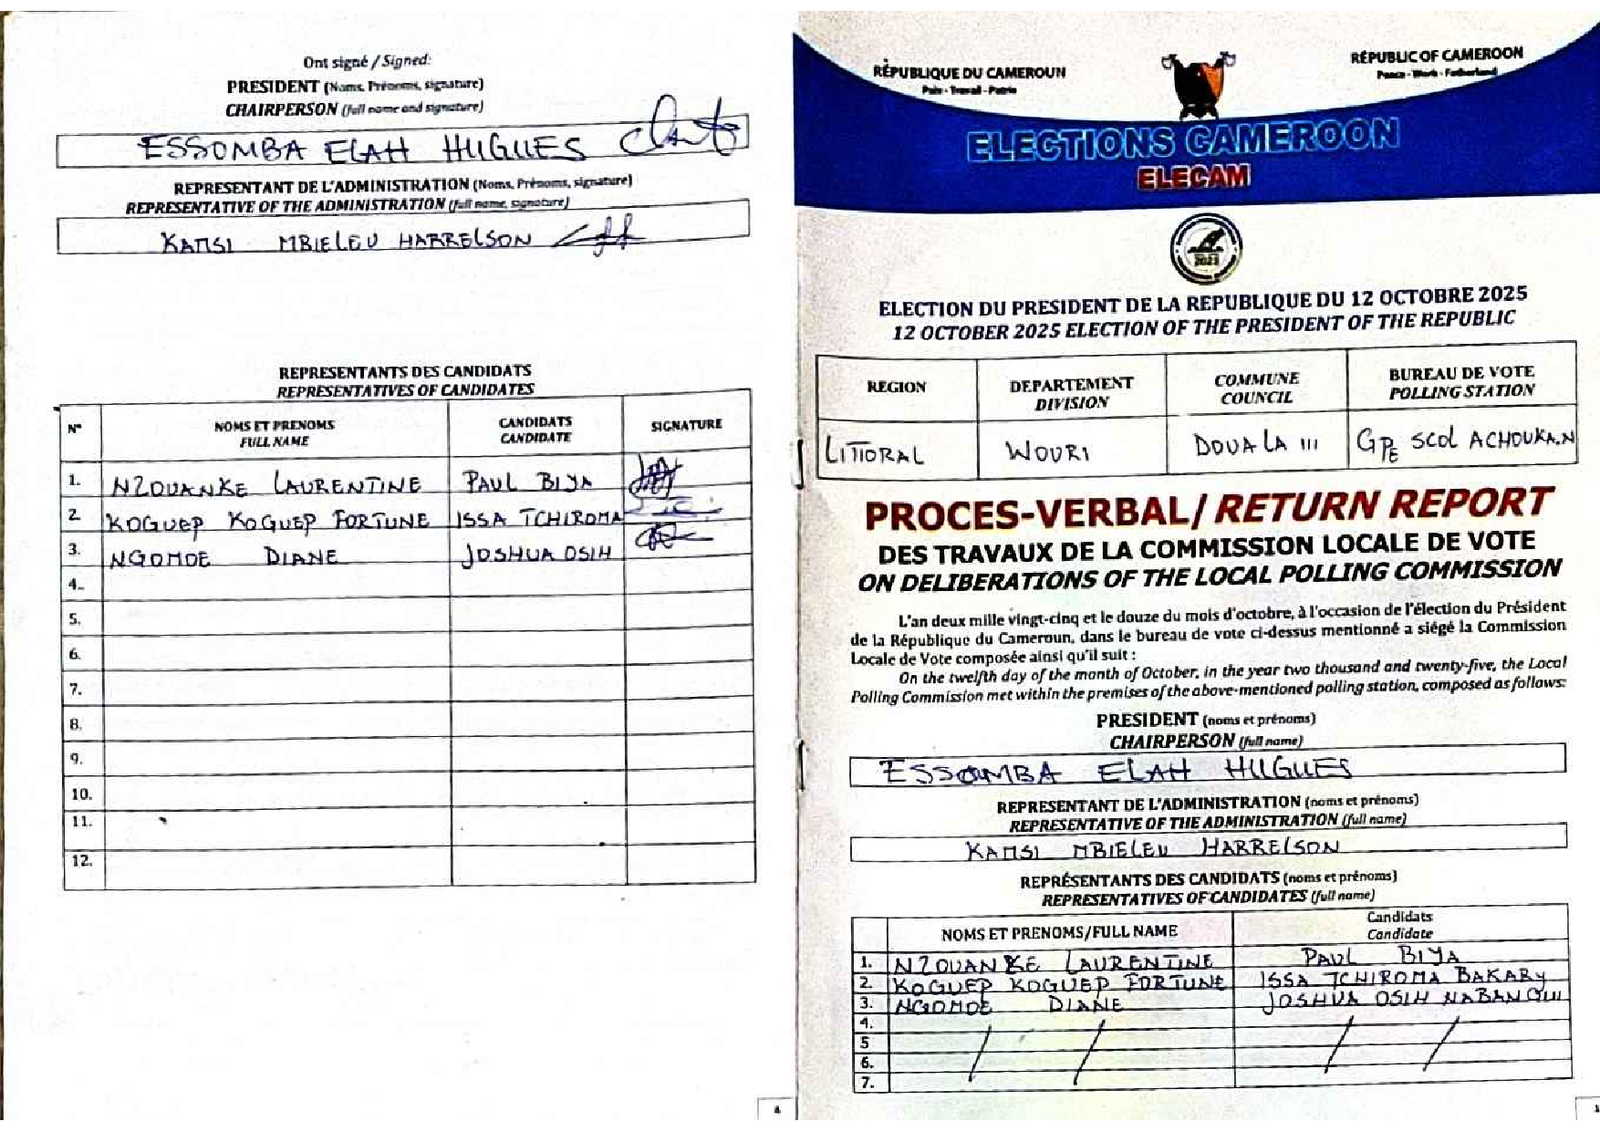 Ont signé / Signed:
PRESIDENT (Noms, Prénoms, signature)
CHAIRPERSON (full name and signature)
ESSOMBA ELAH HUGUES
REPRESENTANT DE L'ADMINISTRATION (Noms, Prénoms, signature)
REPRESENTATIVE OF THE ADMINISTRATION (full name, signature)
KAMSI MBIELEU HARRELSON
REPRESENTANTS DES CANDIDATS
REPRESENTATIVES OF CANDIDATES
N° NOMS ET PRENOMS CANDIDATS SIGNATURE
FULL NAME CANDIDATE
1. NZOUANKE LAURENTINE PAUL BIYA
2. KOGUEP KOGUEP FORTUNE ISSA TCHIROMA
3. NGOMDE DIANE JOSHUA OSIH
4.
5.
6.
7.
8.
9.
10.
11.
12.
4
RÉPUBLIQUE DU CAMEROUN
Paix - Travail - Patrie
RÉPUBLIC OF CAMEROON
Peace - Work - Fatherland
ELECTIONS CAMEROON
ELECAM
ELECTION DU PRESIDENT DE LA REPUBLIQUE DU 12 OCTOBRE 2025
12 OCTOBER 2025 ELECTION OF THE PRESIDENT OF THE REPUBLIC
REGION DEPARTEMENT COMMUNE BUREAU DE VOTE
DIVISION COUNCIL POLLING STATION
LITTORAL WOURI DOUALA III GPE SCOL ACHOUKA.N
PROCES-VERBAL/ RETURN REPORT
DES TRAVAUX DE LA COMMISSION LOCALE DE VOTE
ON DELIBERATIONS OF THE LOCAL POLLING COMMISSION
L'an deux mille vingt-cinq et le douze du mois d'octobre, à l'occasion de l'élection du Président
de la République du Cameroun, dans le bureau de vote ci-dessus mentionné a siégé la Commission
Locale de Vote composée ainsi qu'il suit :
On the twelfth day of the month of October, in the year two thousand and twenty-five, the Local
Polling Commission met within the premises of the above-mentioned polling station, composed as follows:
PRESIDENT (noms et prénoms)
CHAIRPERSON (full name)
ESSOMBA ELAH HUGUES
REPRESENTANT DE L'ADMINISTRATION (noms et prénoms)
REPRESENTATIVE OF THE ADMINISTRATION (full name)
KAMSI MBIELEU HARRELSON
REPRÉSENTANTS DES CANDIDATS (noms et prénoms)
REPRESENTATIVES OF CANDIDATES (full name)
NOMS ET PRENOMS/FULL NAME Candidats
Candidate
1. NZOUANKE LAURENTINE PAUL BIYA
2. KOGUEP KOGUEP FORTUNE ISSA TCHIROMA BAKARY
3. NGOMDE DIANE JOSHUA OSIH
4.
5
6.
7.
1